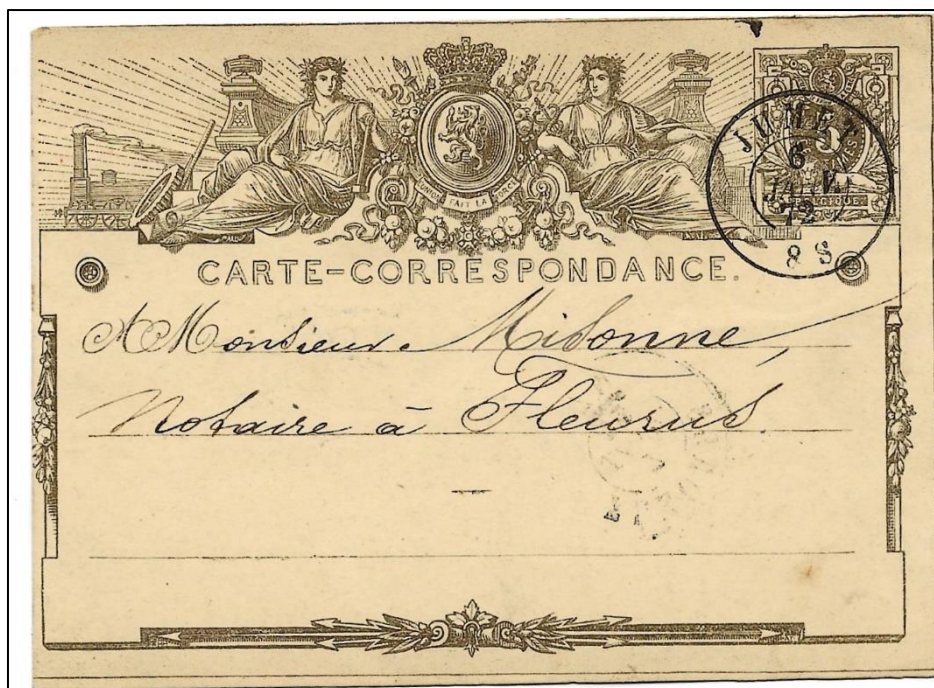 L'UNION FAIT LA FORCE
JUMET
6
JANV
72
8 S
CARTE-CORRESPONDANCE.
A Monsieur Misonne,
Notaire à Fleurus.